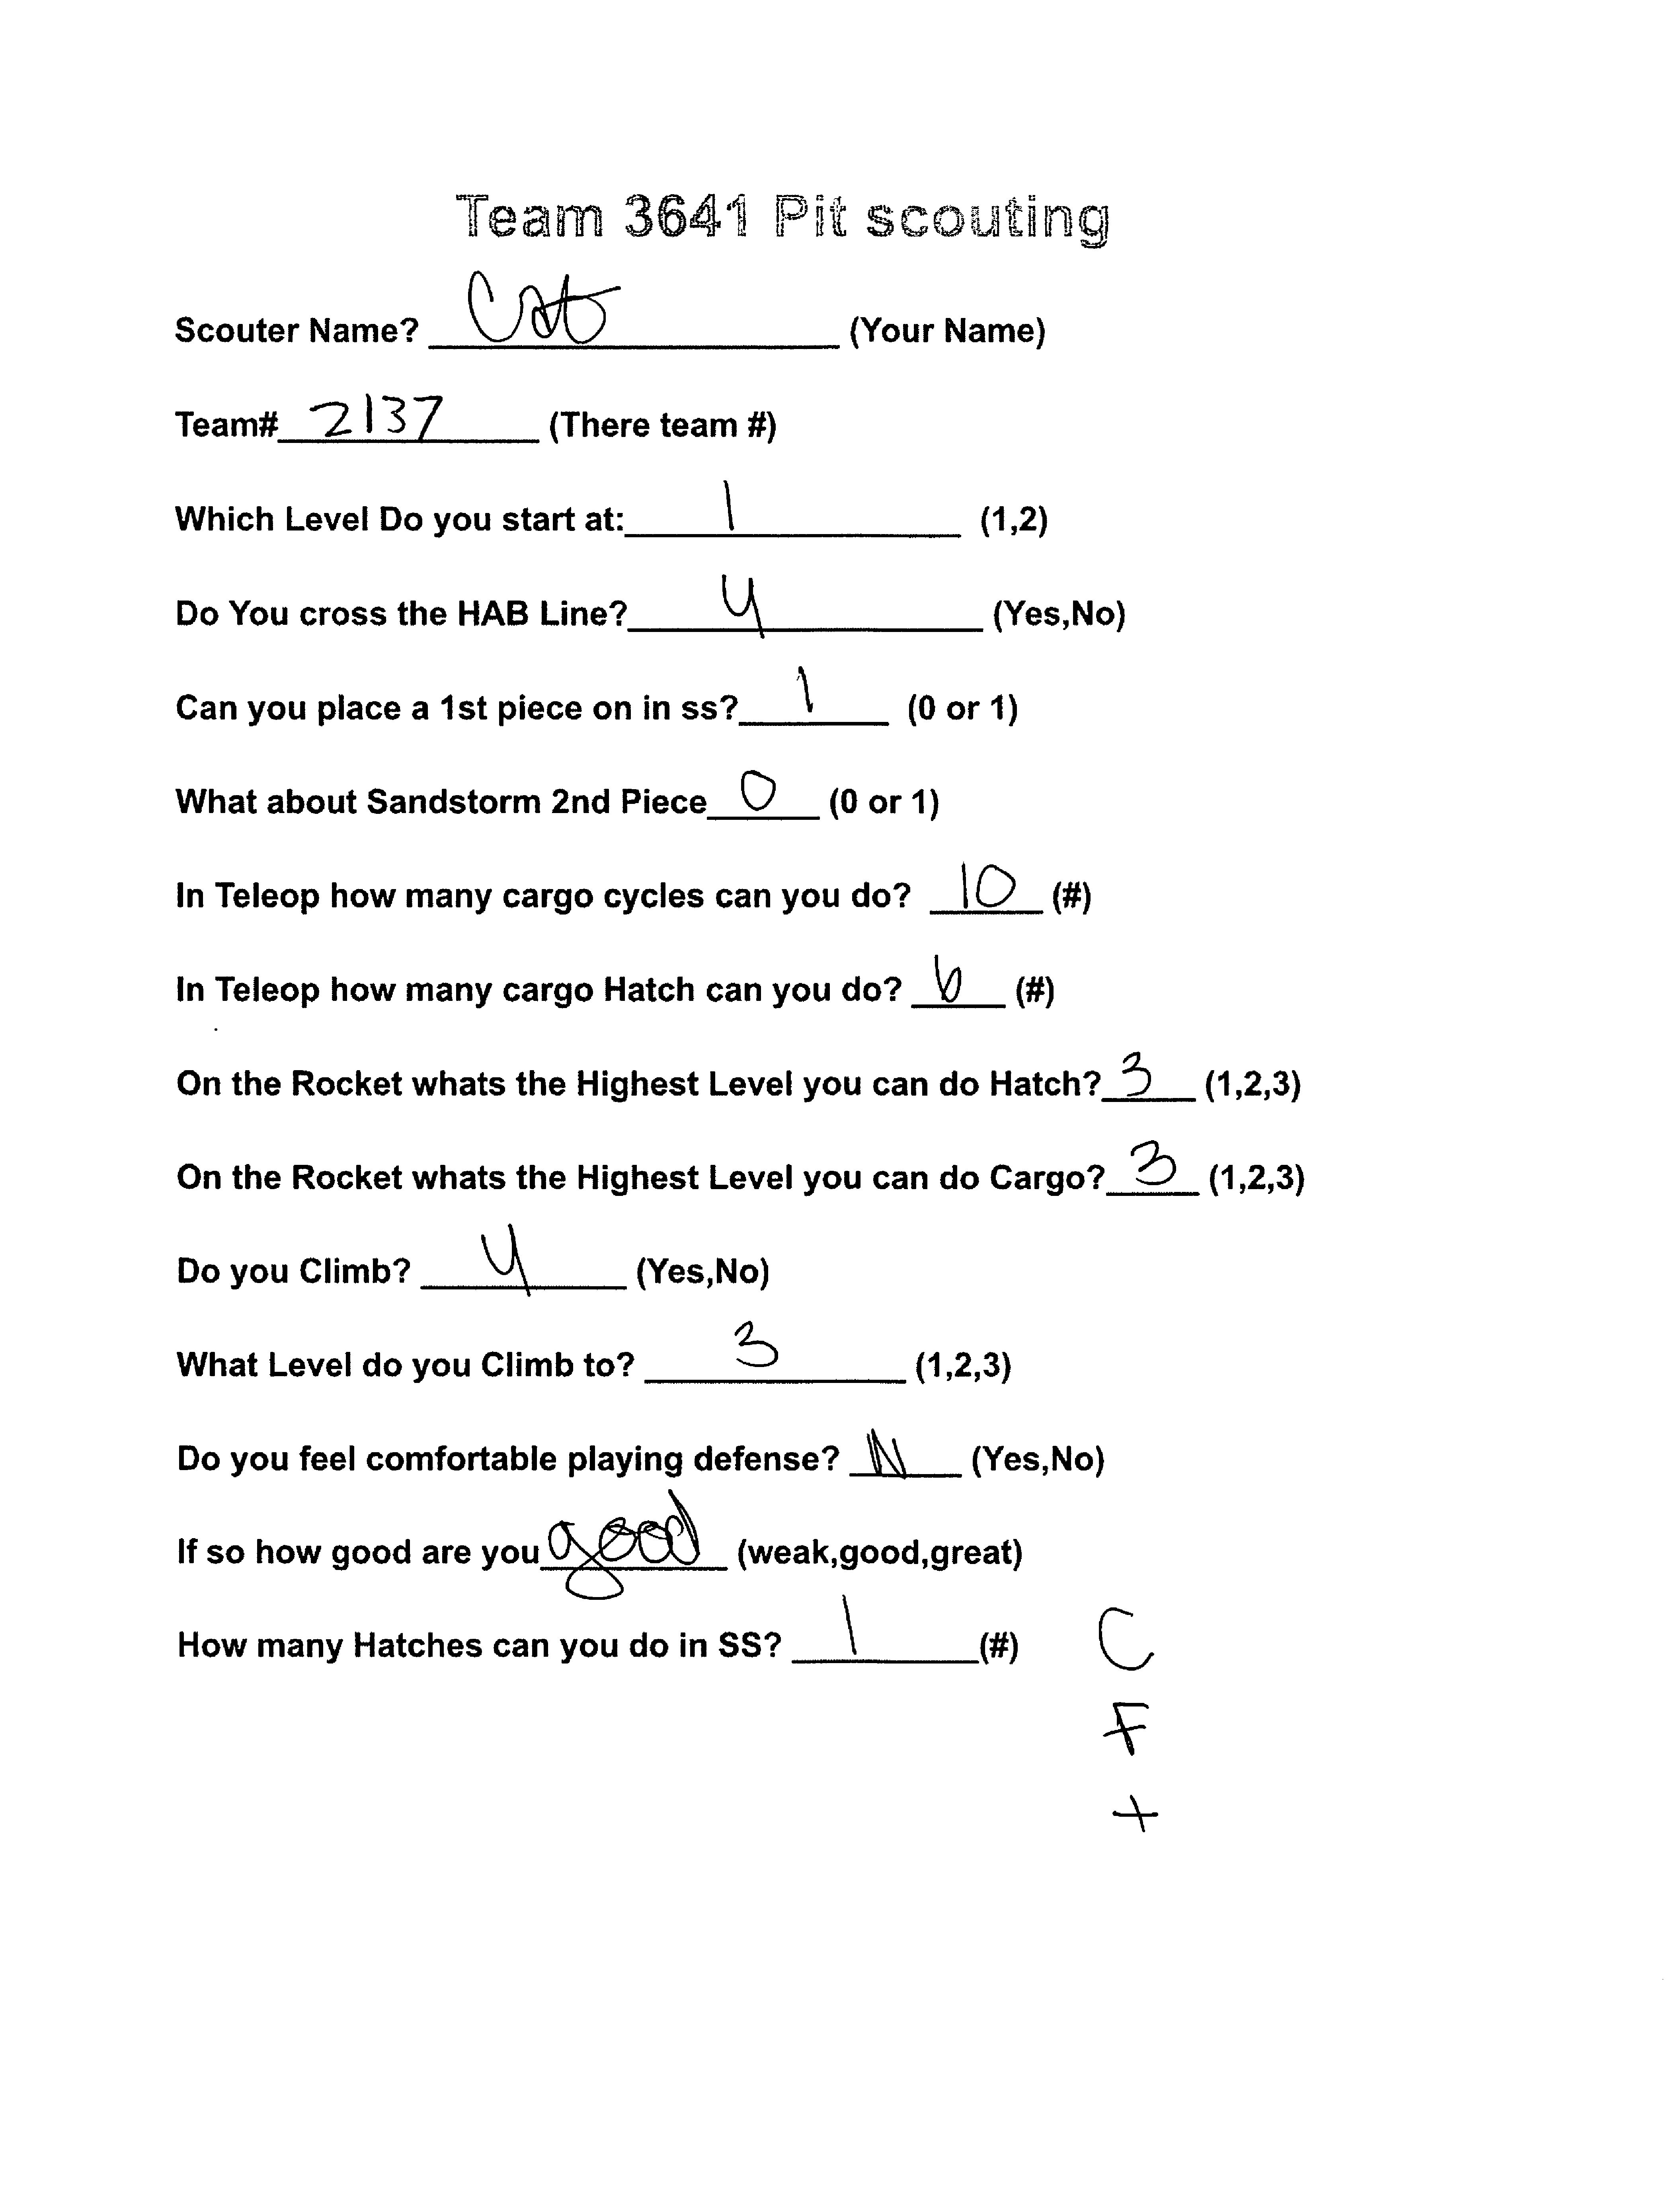 Team 3641 Pit scouting
Scouter Name? Cat (Your Name)
Team# 2137 (There team #)
Which Level Do you start at: 1 (1,2)
Do You cross the HAB Line? y (Yes,No)
Can you place a 1st piece on in ss? 1 (0 or 1)
What about Sandstorm 2nd Piece 0 (0 or 1)
In Teleop how many cargo cycles can you do? 10 (#)
In Teleop how many cargo Hatch can you do? 6 (#)
On the Rocket whats the Highest Level you can do Hatch? 3 (1,2,3)
On the Rocket whats the Highest Level you can do Cargo? 3 (1,2,3)
Do you Climb? y (Yes,No)
What Level do you Climb to? 3 (1,2,3)
Do you feel comfortable playing defense? N (Yes,No)
If so how good are you good (weak,good,great)
How many Hatches can you do in SS? 1 (#) C
F
+